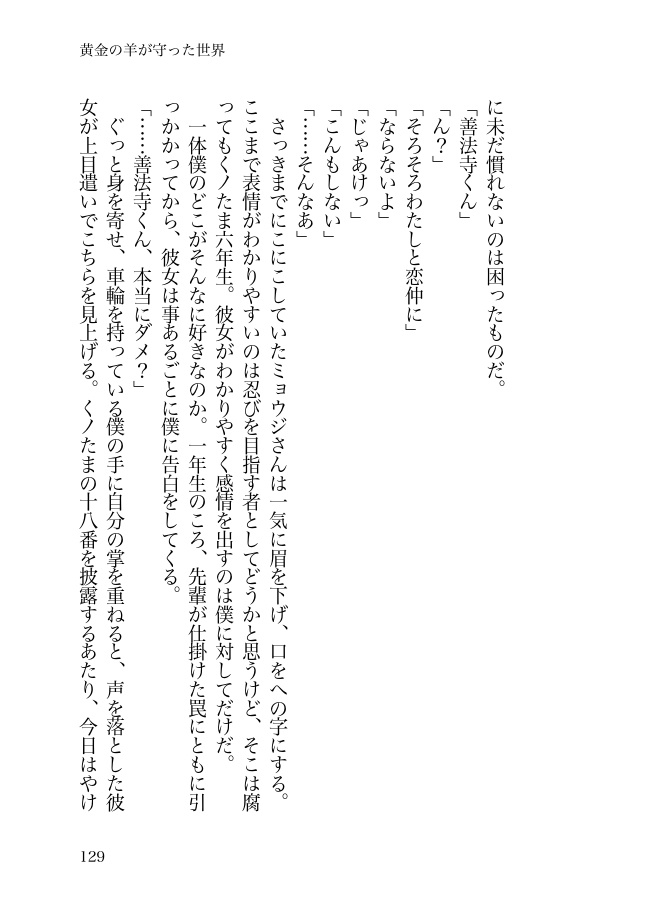 黄金の羊が守った世界
に未だ慣れないのは困ったものだ。
「善法寺くん」
「ん？」
「そろそろわたしと恋仲に」
「ならないよ」
「じゃあけっ」
「こんもしない」
「……そんなあ」
　さっきまでにこにこしていたミョウジさんは一気に眉を下げ、口をへの字にする。
ここまで表情がわかりやすいのは忍びを目指す者としてどうかと思うけど、そこは腐
ってもくノたま六年生。彼女がわかりやすく感情を出すのは僕に対してだけだ。
　一体僕のどこがそんなに好きなのか。一年生のころ、先輩が仕掛けた罠にともに引
っかかってから、彼女は事あるごとに僕に告白をしてくる。
「……善法寺くん、本当にダメ？」
　ぐっと身を寄せ、車輪を持っている僕の手に自分の掌を重ねると、声を落とした彼
女が上目遣いでこちらを見上げる。くノたまの十八番を披露するあたり、今日はやけ
129